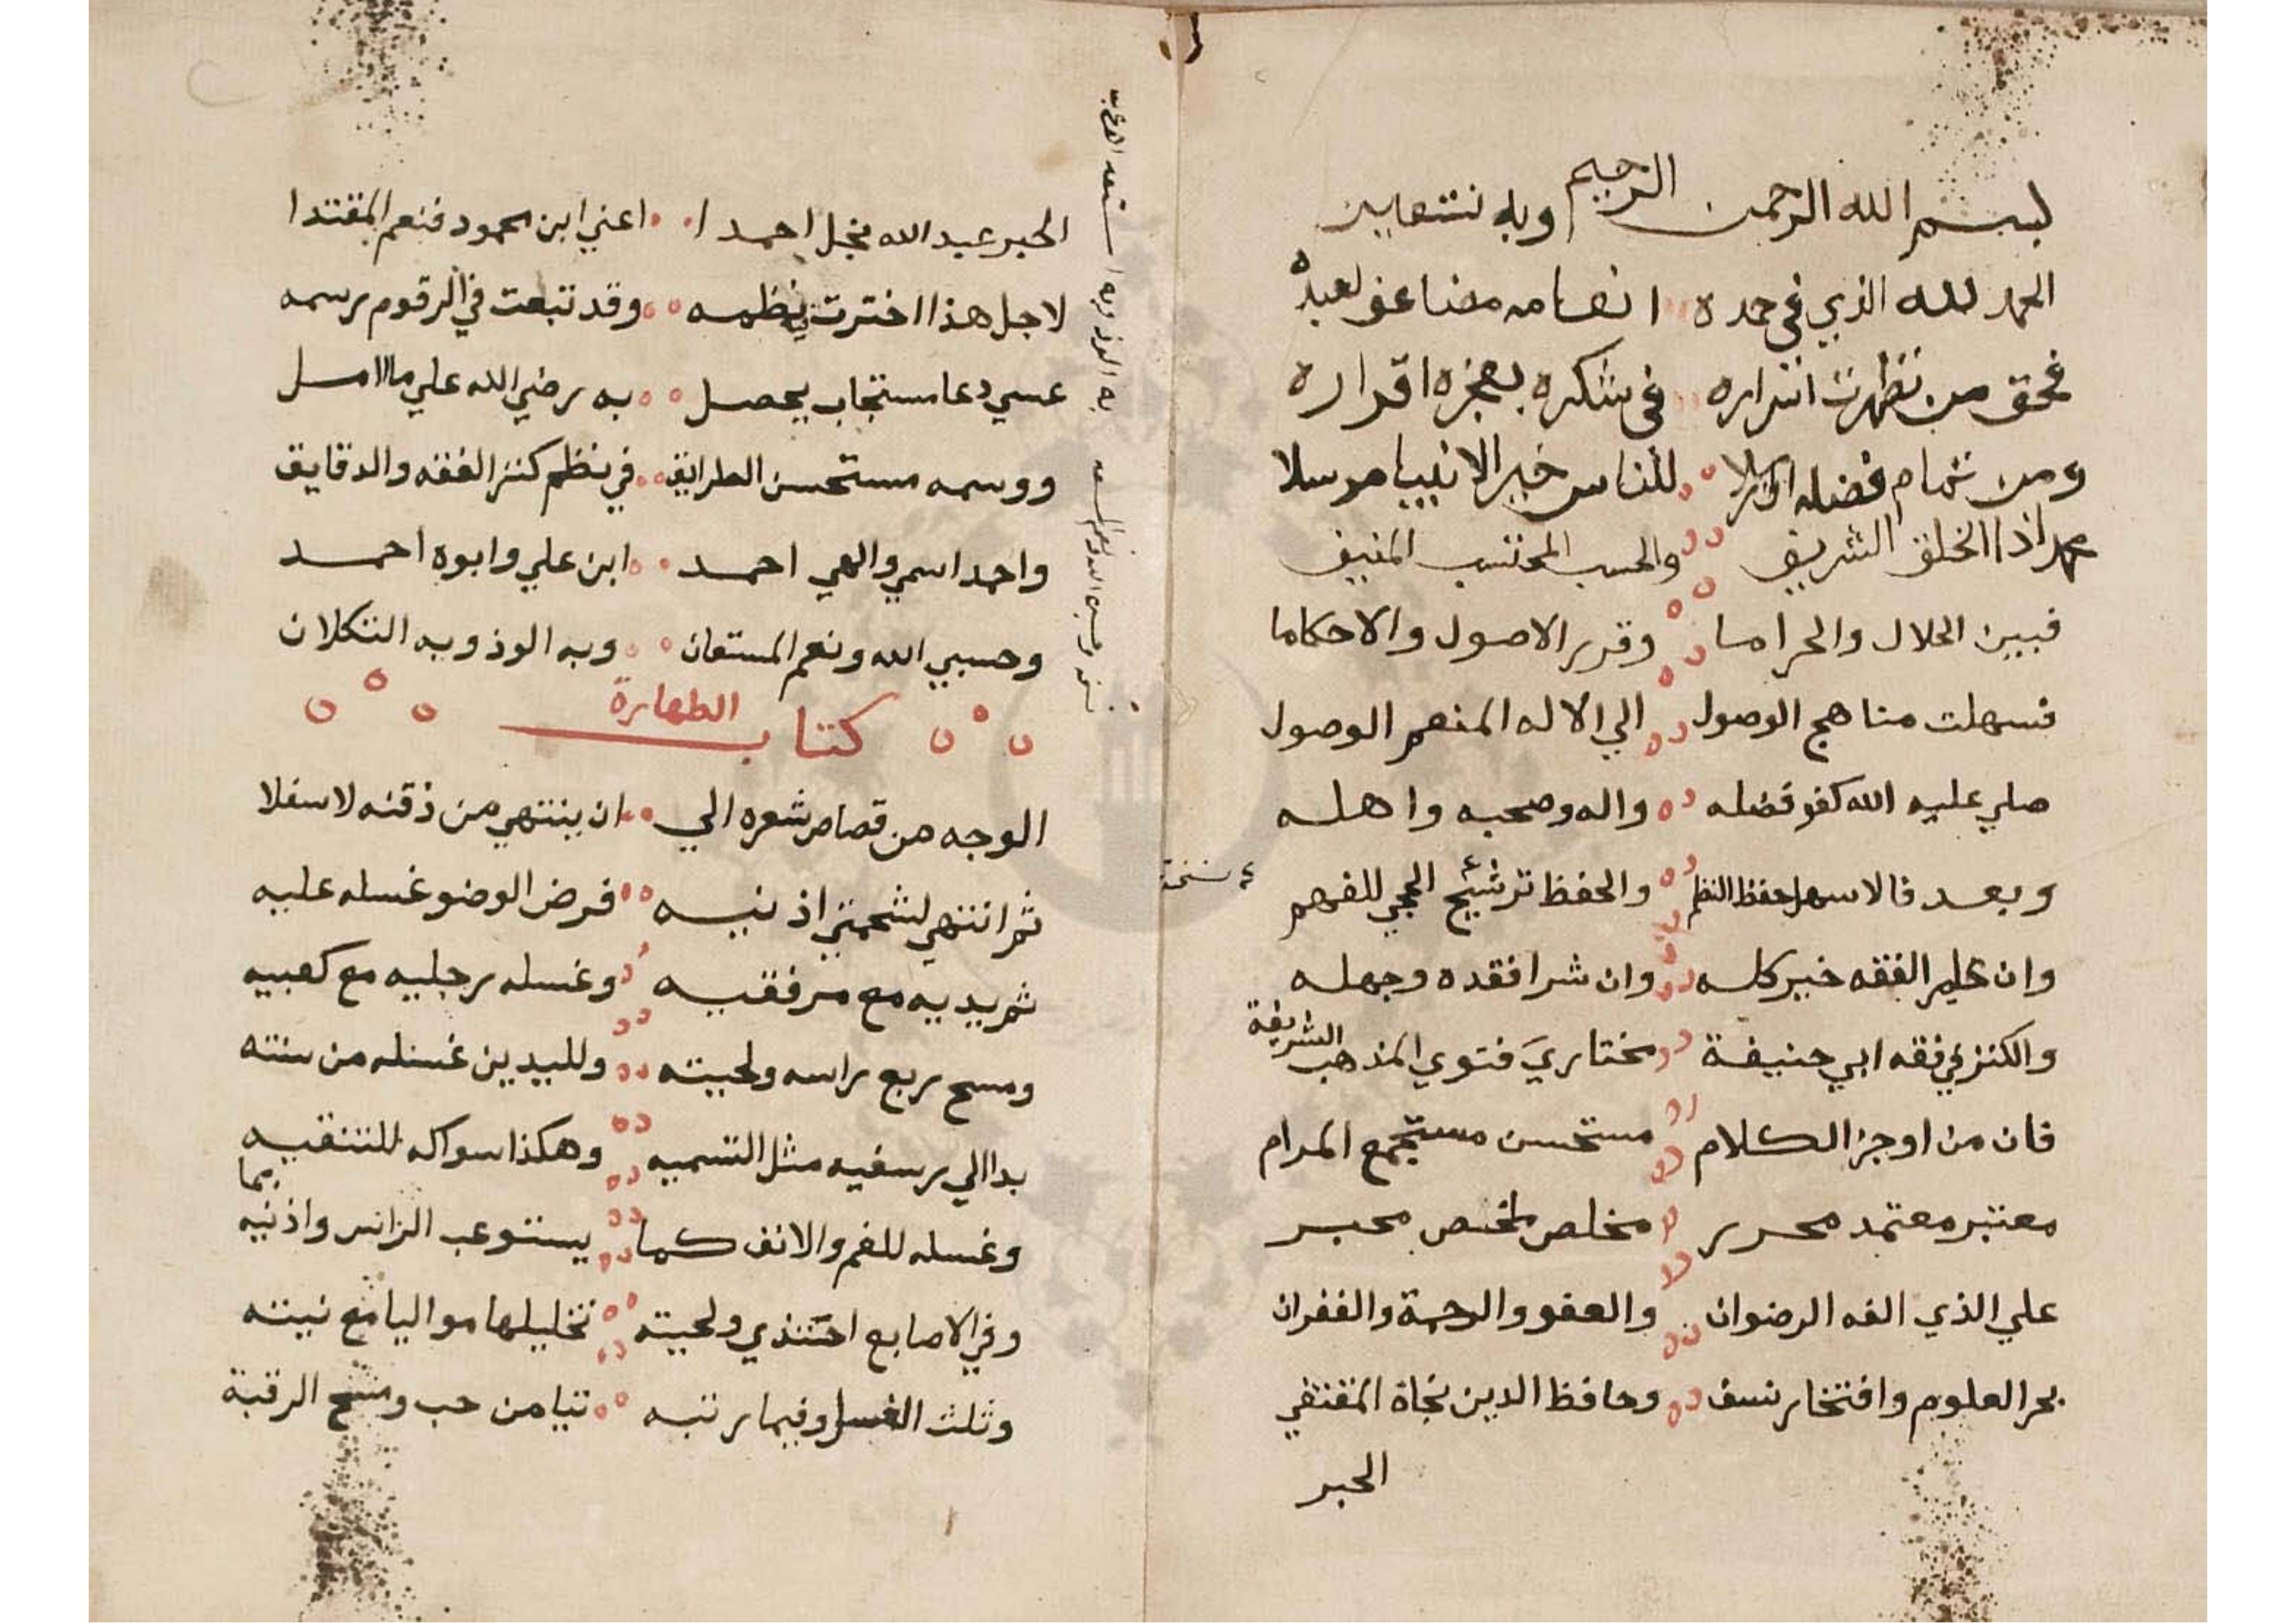 بسم الله الرحمن الرحيم وبه نستعين
الحمد لله الذي في حمده انعامه منا عن لعبده
فحق من تظهرت اسراره في شكره بعجزه اقراره
ومن تمام فضله للناس خير الانبيا مرسلا
محمد اذا الخلق الشريف والحسب المحتسب المنيف
فبين الحلال والحراما وقرر الاصول والاحكاما
فسهلت مناهج الوصول الي الاله المنعم الوصول
صلي عليه الله كفو فضله واله وصحبه واهله
وبعد فالاسهل حفظ النظم والحفظ ترشيح الحجي للفهم
نسخة
وان علم الفقه خير كله وان شرا فقده وجهله
والكنز في فقه ابي حنيفة مختاري فتوي المذهب الشريفة
فان من اوجز الكلام مستحسن مستجمع المرام
معتبر معتمد محرر مخلص ملخص محبر
علي الذي الفه الرضوان والعفو والرحمة والغفران
بحر العلوم وافتخار نسف وحافظ الدين نجاة المقتفي
الحبر
الحبر عبد الله نجل احمدا اعني ابن محمود فنعم المقتدا
لاجل هذا اخترت نظمه وقد تبعت في الرقوم رسمه
عسي دعا مستجاب يحصل به رضي الله علي ما امل
ووسمه مستحسن الطرايق في نظم كنز الفقه والدقايق
واحمد اسمي والهي احمد ابن علي وابوه احمد
وحسبي الله ونعم المستعان وبه الوذ وبه التكلان
كتاب الطهارة
الوجه من قصاص شعره الي ان ينتهي من ذقنه لاسفلا
ثم انتهي لشحمتي اذنيه فرض الوضو غسله عليه
ثم يديه مع مرفقيه وغسله رجليه مع كعبيه
ومسح ربع راسه ولحيته ولليدين غسله من سنته
بدا الي رسغيه مثل التسميه وهكذا سواكه للتنقيه
وغسله للفم والانف كما يستوعب الراس واذنيه بما
وفي الاصابع احتذي ولحيته تخليلها مواليا مع نيته
وثلث الغسل وفيما رتبه تيامن حب ومسح الرقبة